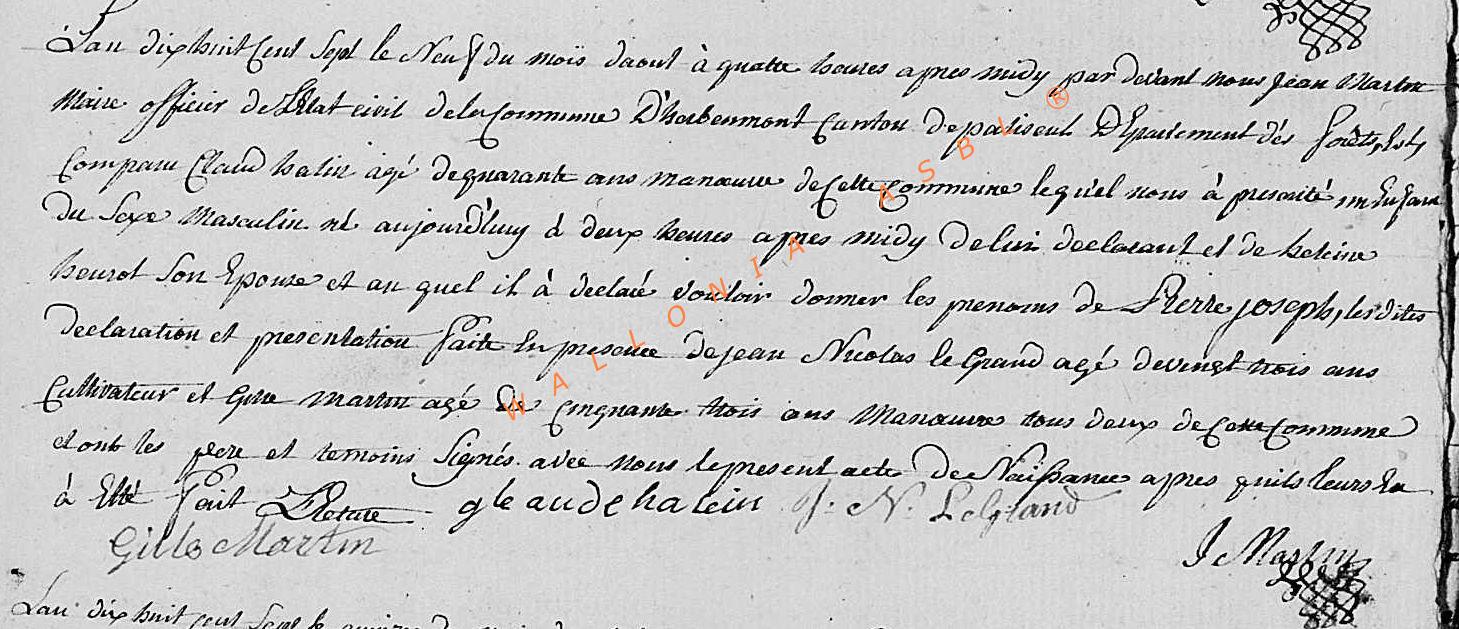 Lan dix huit Cent Sept le Neuf du mois daout à quatre heures apres midy par devant nous Jean Martin
Maire officier de L'Etat civil de la Commune D'herbeumont Canton de paliseul Département dès forêts, Est
Comparu Claud halin agé de quarante ans manoeuvre de Cette Commune lequel nous à presenté un Enfant
du Sexe Masculin né aujourd'huy à deux heures apres midy de lui declarant et de heleine
heurot Son Epouse et au quel il à declaré vouloir donner les prenoms de Pierre joseph, les dites
declaration et presentation faite En presence de jean Nicolas le Grand agé de vingt trois ans
Cultivateur et Gille Martin agé de cinquante trois ans Manoeuvre tous deux de Cette Commune
et ont les pere et temoins Signés avec nous le present acte de Naissance apres quils leurs En
à Etté fait Lecture gleaude halein J. N. LeGrand
Gille Martin J Martin
Lan dix huit cent Sept le
WALLONIA ASBL ®